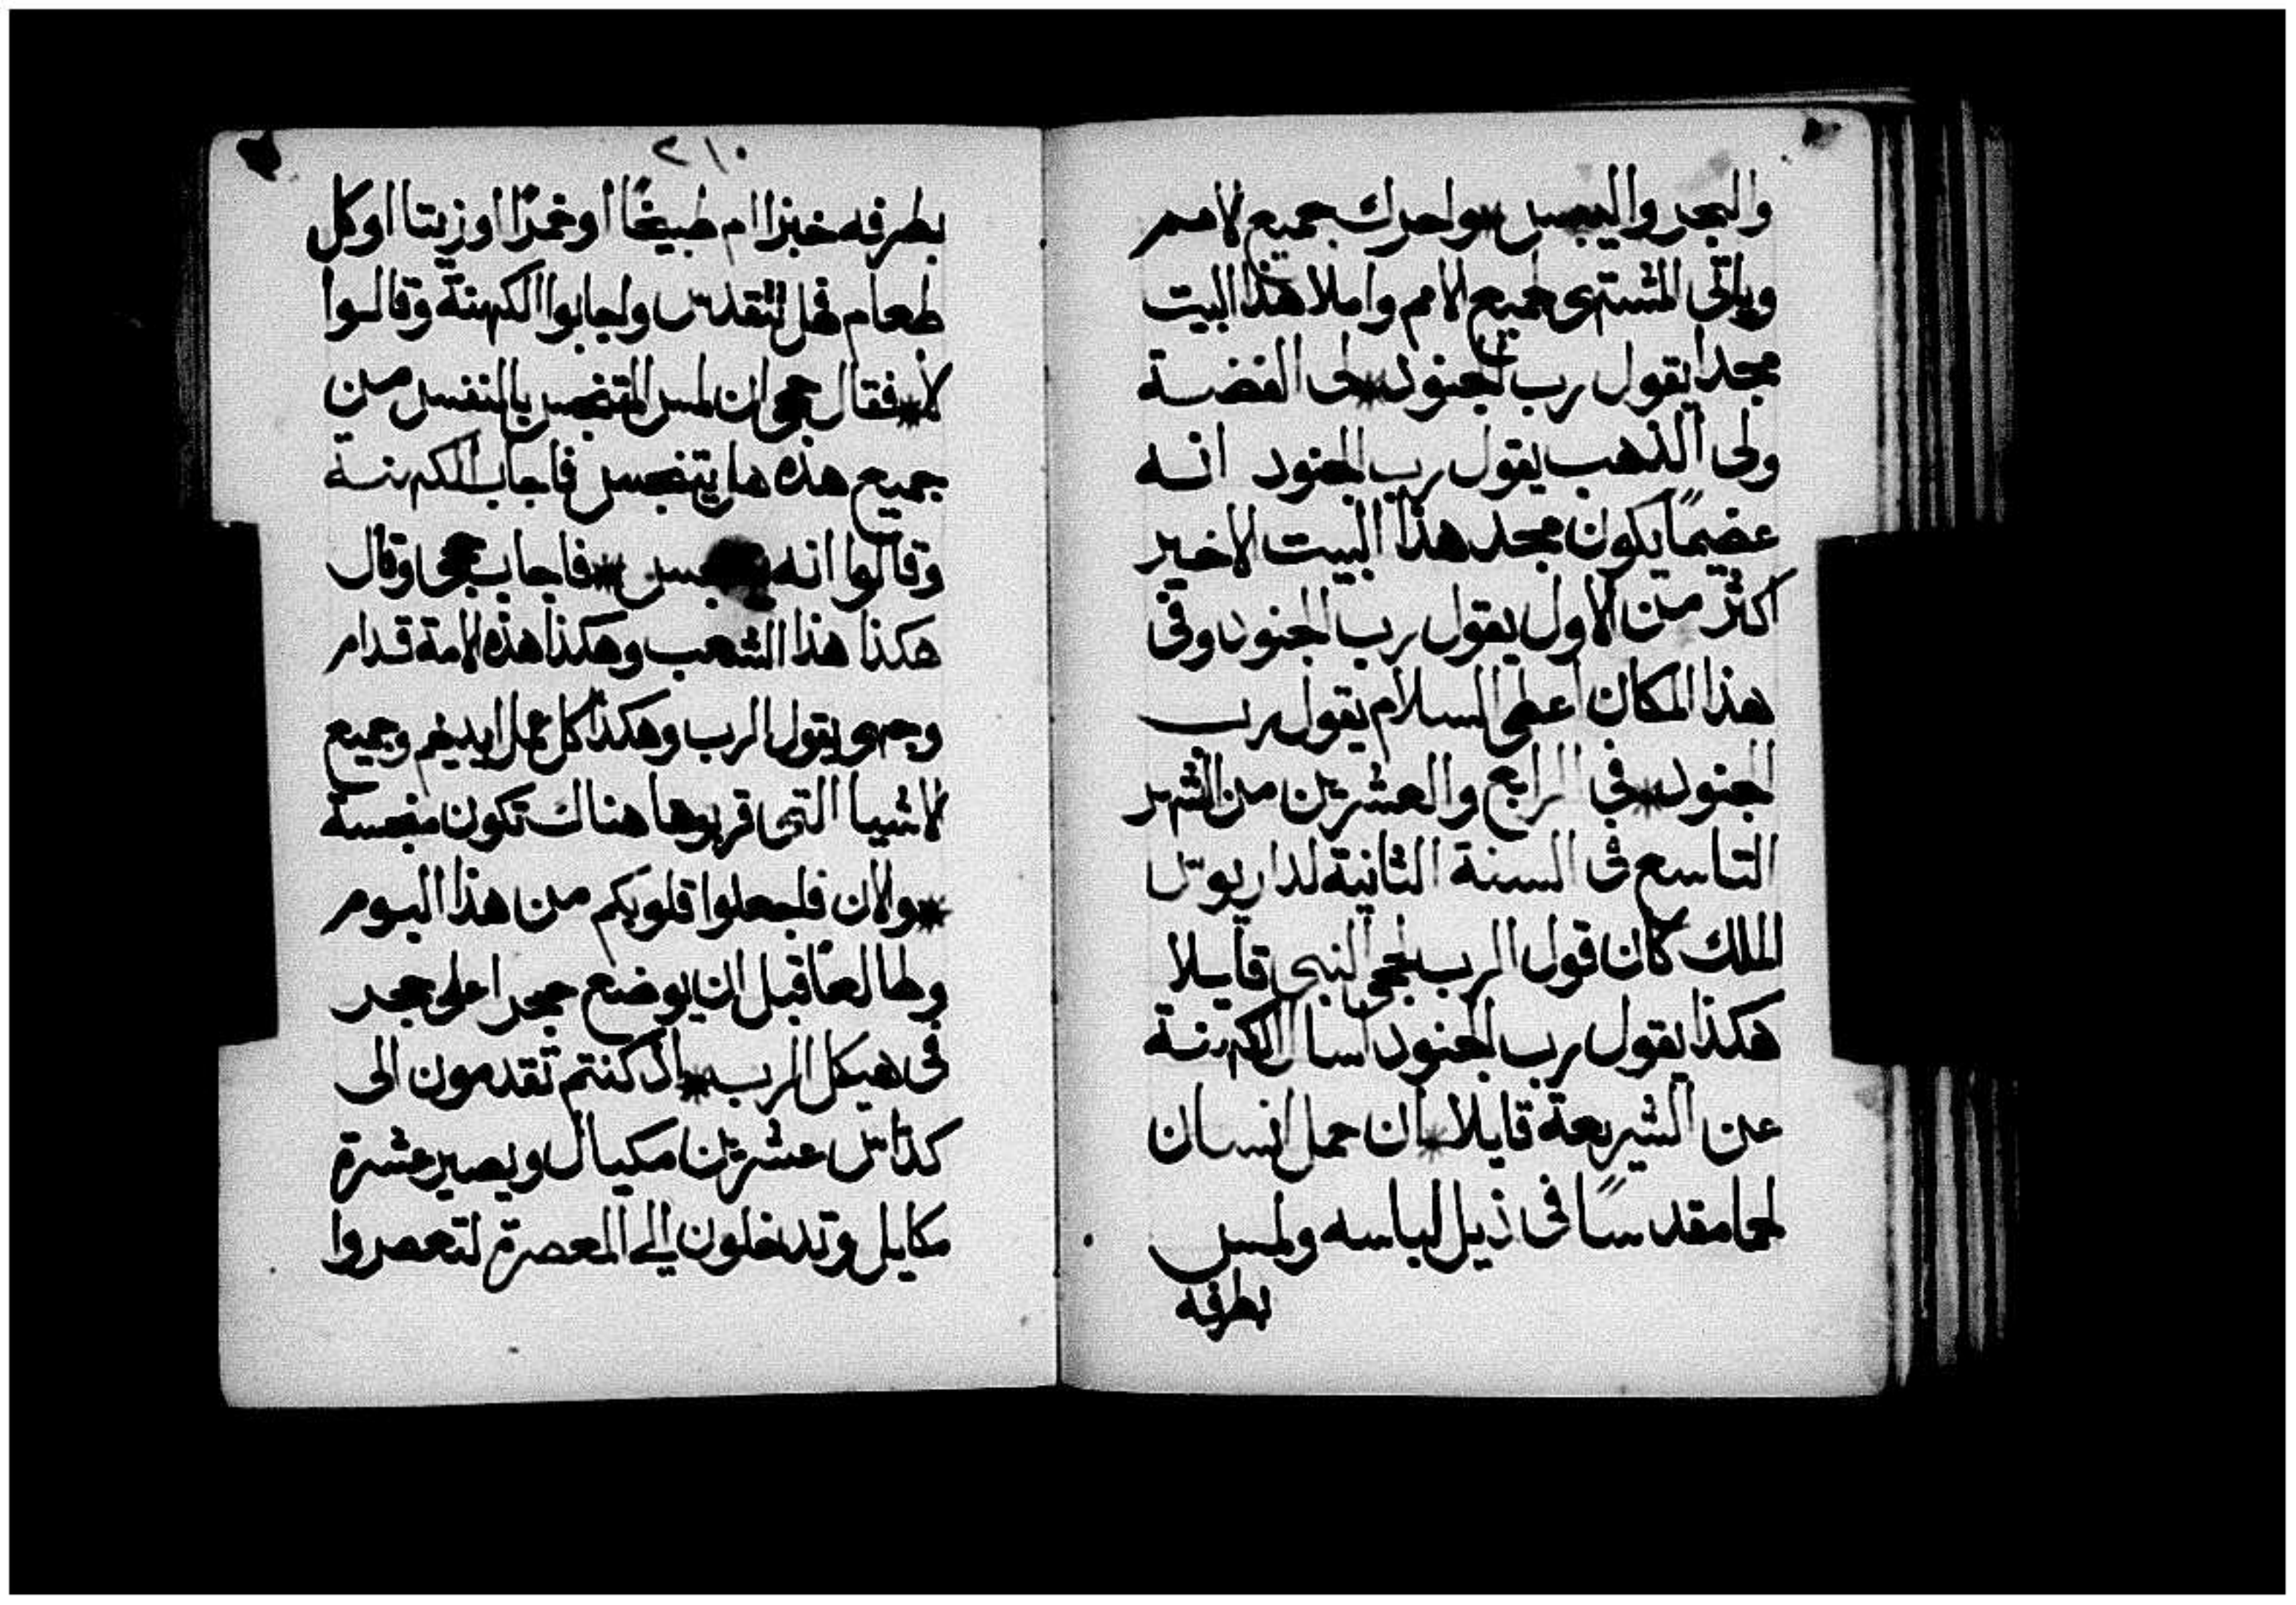 والبحر واليبس * واحرك جميع الامم
وياتى المشتهى لجميع الامم واملا هذا البيت
مجدا يقول رب الجنود * لى الفضة
ولى الذهب يقول رب الجنود انه
عضيمًا يكون مجد هذا البيت الاخير
اكثر من الاول يقول رب الجنود وفى
هذا المكان اعطى السلام يقول رب
الجنود * فى الرابع والعشرين من الشهر
التاسع فى السنة الثانية لداريوس
الملك كان قول الرب لحجى النبى قايلا
هكذا يقول رب الجنود اسال الكهنة
عن الشريعة قايلا * ان حمل انسان
لحما مقدسًا فى ذيل لباسه ولمس
بطرفه
٢١٠
بطرفه خبزا ام طبيخًا او خمرًا او زيتا او كل
طعام فهل تتقدس واجابوا الكهنة وقالوا
لا * فقال حجى ان لمس المتنجس بالنفس من
جميع هذه هل يتنجس فاجاب الكهنة
وقالوا انه * فاجاب حجى وقال
هكذا هذا الشعب وهكذا هذه الامة قدام
وجهى يقول الرب وهكذا كل عمل ايديهم وجميع
الاشيا التى قربوها هناك تكون منجسة
* والان فاجعلوا قلوبكم من هذا اليوم
وطالعًا قبل ان يوضع حجرا على حجر
فى هيكل الرب * اذ كنتم تقدمون الى
كداس عشرين مكيال ويصير عشرة
مكايل وتدخلون الى المعصرة لتعصروا